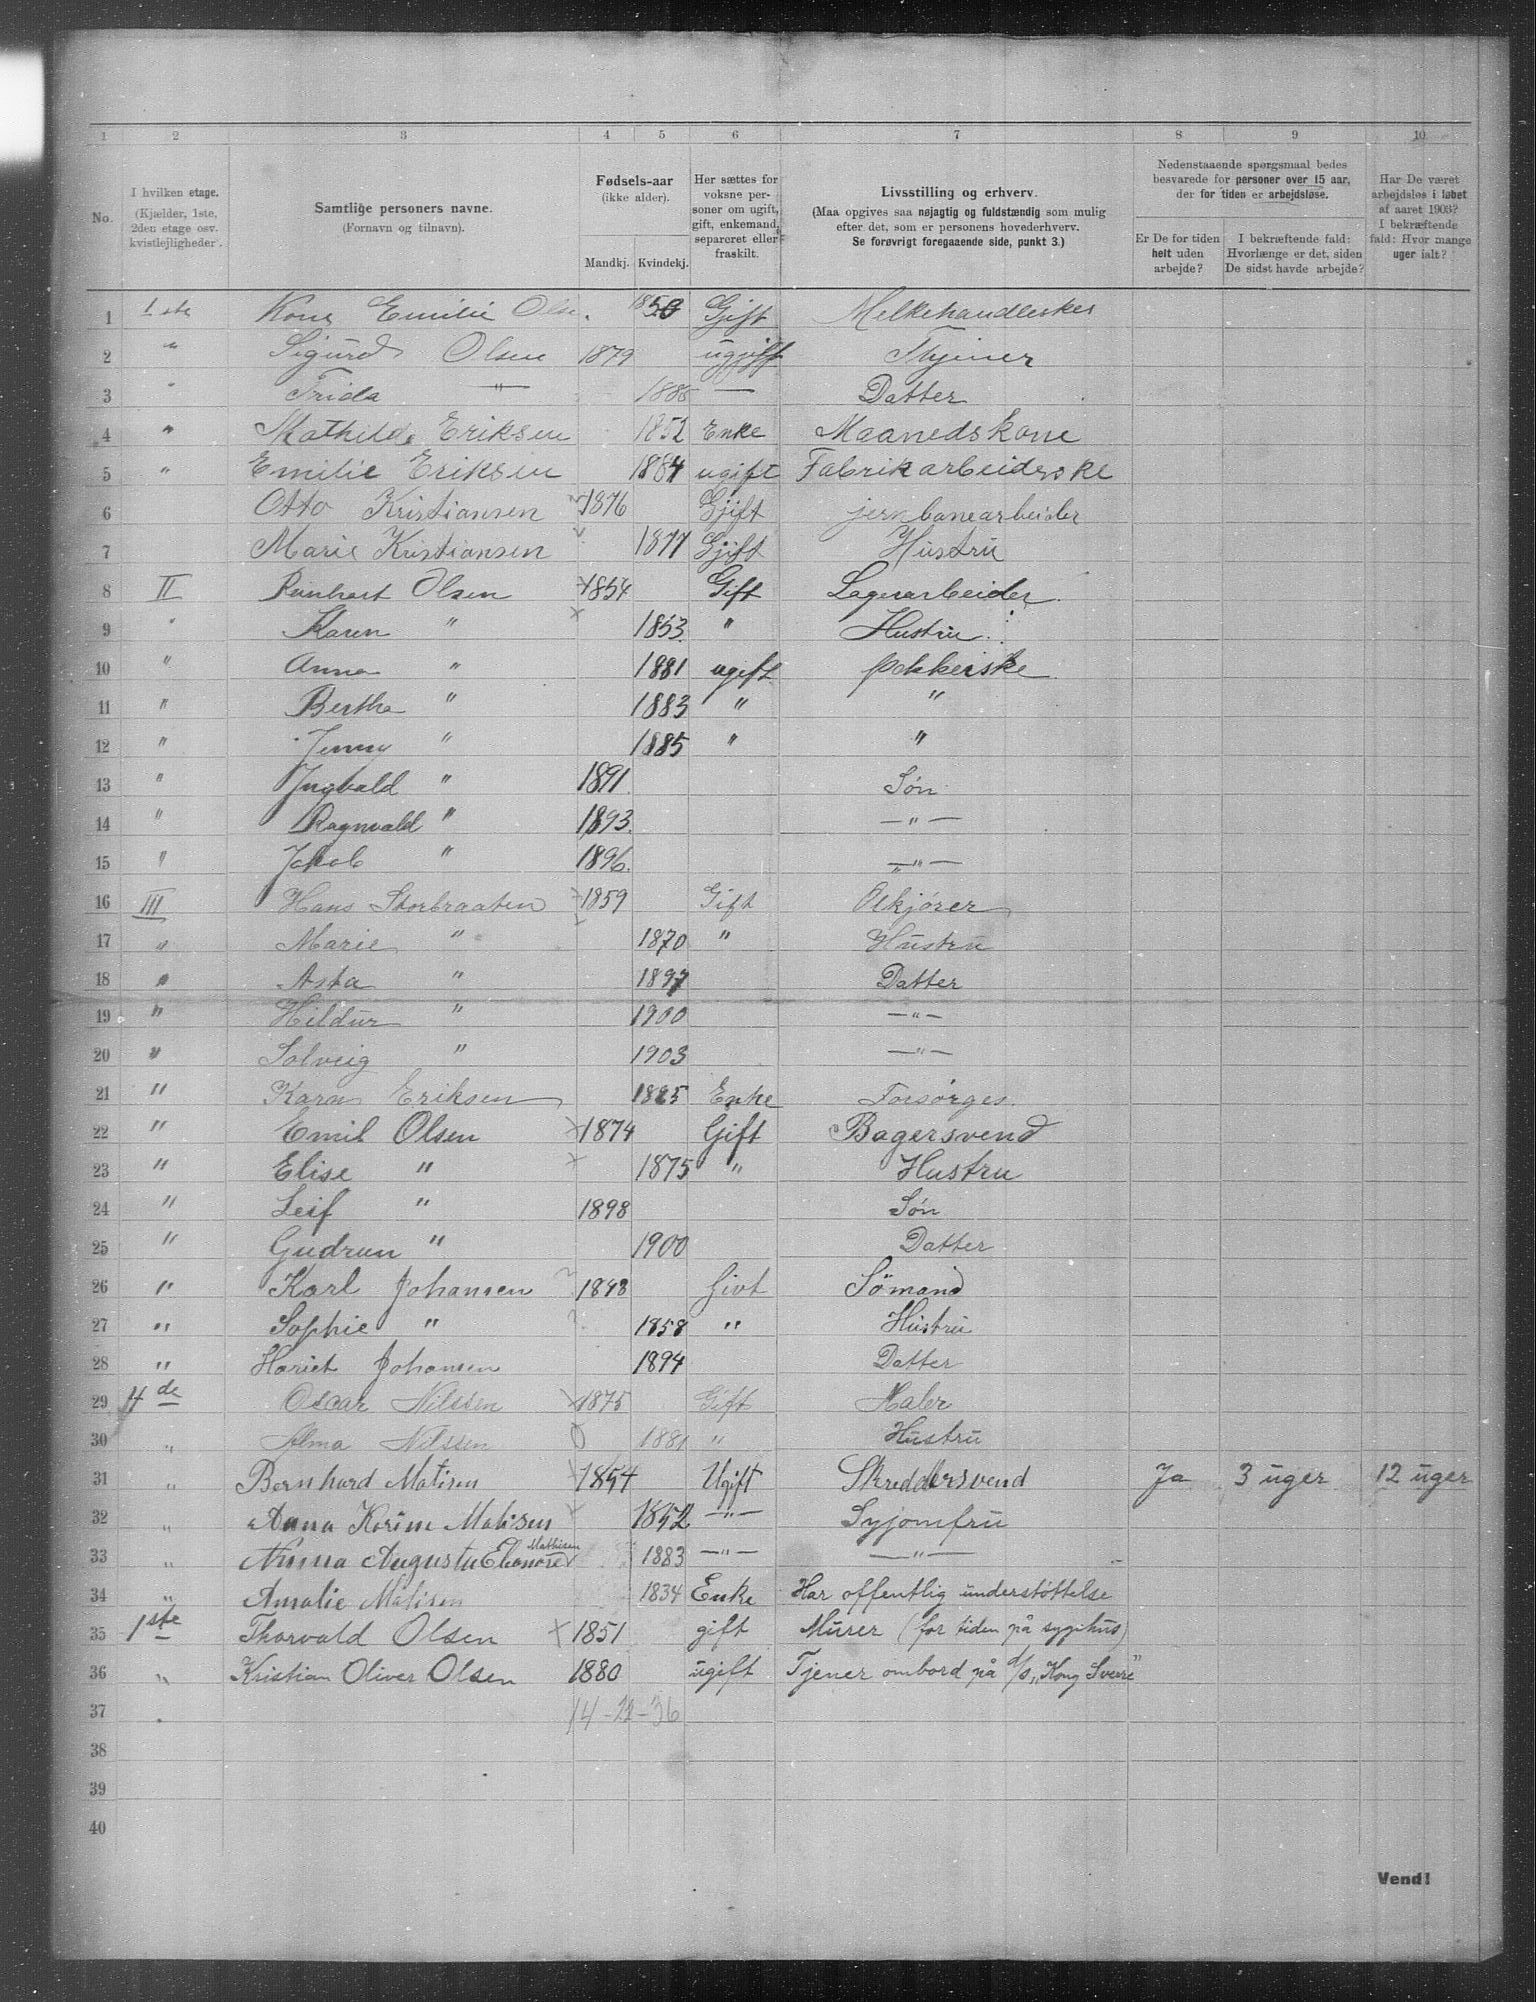 1 2 3 4 5 6 7 8 9 10
No.
I hvilken etage.
(Kjælder, 1ste,
2den etage osv.
kvistlejligheder).
Samtlige personers navne.
(Fornavn og tilnavn).
Fødsels-aar
(ikke alder).
Mandkj. Kvindekj.
Her sættes for
voksne per-
soner om ugift,
gift, enkemand,
separeret eller
fraskilt.
Livsstilling og erhverv.
(Maa opgives saa nøjagtig og fuldstændig som mulig
efter det, som er personens hovederhverv.
Se forøvrigt foregaaende side, punkt 3.)
Nedenstaaende spørgsmaal bedes
besvarede for personer over 15 aar,
der for tiden er arbejdsløse.
Er De for tiden
helt uden
arbejde?
I bekræftende fald:
Hvorlænge er det, siden
De sidst havde arbejde?
Har De været
arbejdsløs i løbet
af aaret 1903?
I bekræftende
fald: Hvor mange
uger ialt?
1 1ste Kone Emilie Olsen 1850 Gift Melkehandleskes
2 " Sigurd Olsen 1879 ugjift Thjener
3 " Frida —"— — Datter
4 " Mathilde Eriksen 1852 Enke Maanedskone
5 " Emilie Eriksen 1884 ugift Fabrikarbeiderske
6 Otto Kristiansen 1876 Gjift jernbanearbeider
7 Marie Kristiansen 1877 Gjift Hustru
8 II Reinhart Olsen X 1854 Gift Lagerarbeider
9 " Karen " X 1853 " Hustru
10 " Anna " 1881 ugift pekkerske
11 " Bertha " 1883 " "
12 " Jenny " 1885 " "
13 " Ingvald " 1891 Søn
14 " Ragnvald " 1893 —"—
15 " Jakob " 1896 —"—
16 III Hans Storbraaten 1859 Gift Ølkjører
17 " Marie " 1870 " Hustru
18 " Asta " 1897 Datter
19 " Hildur " 1900 —"—
20 " Solveig " 1903 —"—
21 " Karen Eriksen 1825 Enke Forsørges
22 " Emil Olsen X 1874 Gift Bagersvend
23 " Elise " X 1875 " Hustru
24 " Leif " 1898 Søn
25 " Gudrun " 1900 Datter
26 " Karl Johansen ? 1848 Givt Sömand
27 " Sophie " ? 1858 " Hustru
28 " Hariet Johansen 1894 Datter
29 4de Oscar Nilssen X 1875 Gift Maler
30 " Alma Nilssen 1881 " Hustru
31 " Bernhard Matisen X 1854 Ugift Skreddersvend Ja 3 uger 12 uger
32 " Anna Korine Matisen X 1852 —"— Syjomfru
33 " Augusta Elionore Mathisen 1883 —"— —"—
34 " Amalie Matisen 1834 Enke Har offentlig understøttelse
35 1ste Thorvald Olsen X 1851 gift Murer (for tiden på sygehus)
36 " Kristian Oliver Olsen 1880 ugift Tjener ombord på d/s „Kong Sverre"
37 14-22-36
38
39
40
Vend!